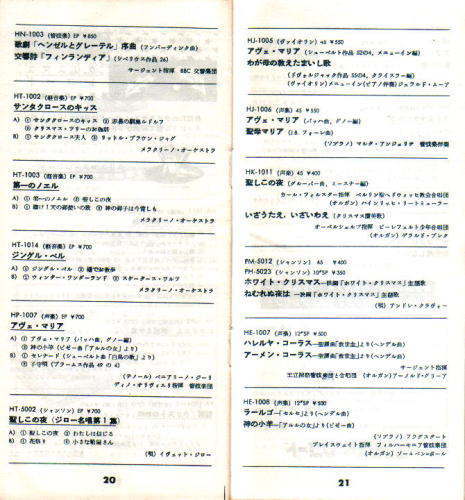 HN-1003 (管弦楽) EP ¥850
歌劇「ヘンゼルとグレーテル」序曲 (フンパーディンク曲)
交響詩「フィンランディア」 (シベリウス作品26)
サージェント指揮 BBC 交響楽団
HT-1002 (軽音楽) EP ¥700
サンタクロースのキッス
A) ① サンタクロースのキッス ② 赤鼻の馴鹿ルドルフ
③ クリスマス・ツリーのお伽話
B) ① サンタクロース夫人 ② リットル・ブラウン・ジャグ
メラクリーノ・オーケストラ
HT-1003 (軽音楽) EP ¥700
第一のノエル
A) ① 第一のノエル ② 聖しこの夜
B) ① 聴け!天の御使いの歌 ② 神の御子は今宵しも
メラクリーノ・オーケストラ
HT-1014 (軽音楽) EP ¥700
ジングル・ベル
A) ① ジングル・ベル ②
B) ① ウィンター・ワンダーランド ② スケーターズ・ワルツ
メラクリーノ・オーケストラ
HP-1007 (声楽) EP ¥700
アヴェ・マリア
A) ① アヴェ・マリア (バッハ曲, グノー編)
② 神の小羊 (ビゼー曲「アルルの女」より)
B) ① セレナード (シューベルト曲「白鳥の歌」より)
② 子守唄 (ブラームス作品49の4)
(テノール) ベニアミーノ・ジーリ
ディノ・オリヴィエリ指揮 管弦楽団
HT-5002 (シャンソン) EP ¥700
聖しこの夜 (ジロー名唱第1集)
A) ① 聖しこの夜 ② わたしは信じる
B) ① 花祭り ② 小さな靴屋さん
(唄) イヴェット・ジロー
20
HJ-1005 (ヴァイオリン) 45 ¥550
アヴェ・マリア (シューベルト作品52の4, メニューイン編)
わが母の教えたまいし歌
(ドヴォルジャック作品55の4, クライスラー編)
(ヴァイオリン)メニューイン(ピアノ伴奏)ジェラルド・ムーア
HJ-1006 (声楽) 45 ¥550
アヴェ・マリア (バッハ曲, グノー編)
聖母マリア (J.B. フォーレ曲)
(ソプラノ) マルタ・アンジェリチ 管弦楽伴奏
HK-1011 (声楽) 45 ¥400
聖しこの夜 (グルーバー曲, ミースナー編)
カール・フォルスター指揮 ベルリン聖ヘドウィッヒ教会合唱団
(オルガン) ハインリッヒ・リートミューラー
いざうたえ, いざいわえ (クリスマス讃美歌)
オーベルシェルプ指揮 ビーレフェルト少年合唱団
(オルガン) ゲラルド・ブレネ
PM-5012 (シャンソン) 45 ¥400
PH-5023 (シャンソン) 10"SP ¥350
ホワイト・クリスマス—映画「ホワイト・クリスマス」主題歌
ねむれぬ夜は —映画「ホワイト・クリスマス」主題歌
(唄) アンドレ・クラヴォー
HE-1007 (声楽) 12"SP ¥500
ハレルヤ・コーラス—聖譚曲「救世主」より(ヘンデル曲)
アーメン・コーラス—聖譚曲「救世主」より(ヘンデル曲)
サージェント指揮
王立歌劇管弦楽団と合唱団 (オルガン)アーノルド・グリーア
HE-1008 (声楽) 12"SP ¥500
ラールゴ—「セルセ」より(ヘンデル曲)
神の小羊—「アルルの女」より(ビゼー曲)
(ソプラノ) フラグスタート
ブレイスウェイト指揮 フィルハーモニア管弦楽団
(オルガン) ソールベン=ボール
21